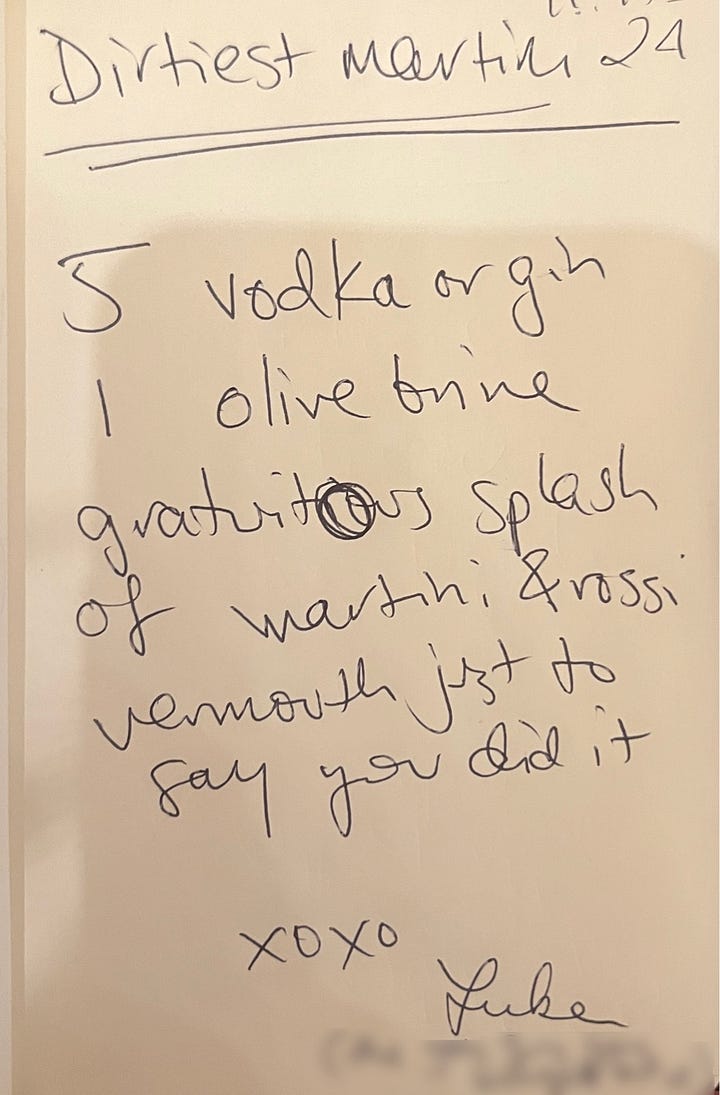 Dirtiest martini 24
5 vodka or gin
1 olive brine
gratuitous splash
of martini & rossi
vermouth just to
say you did it
xoxo
Luke